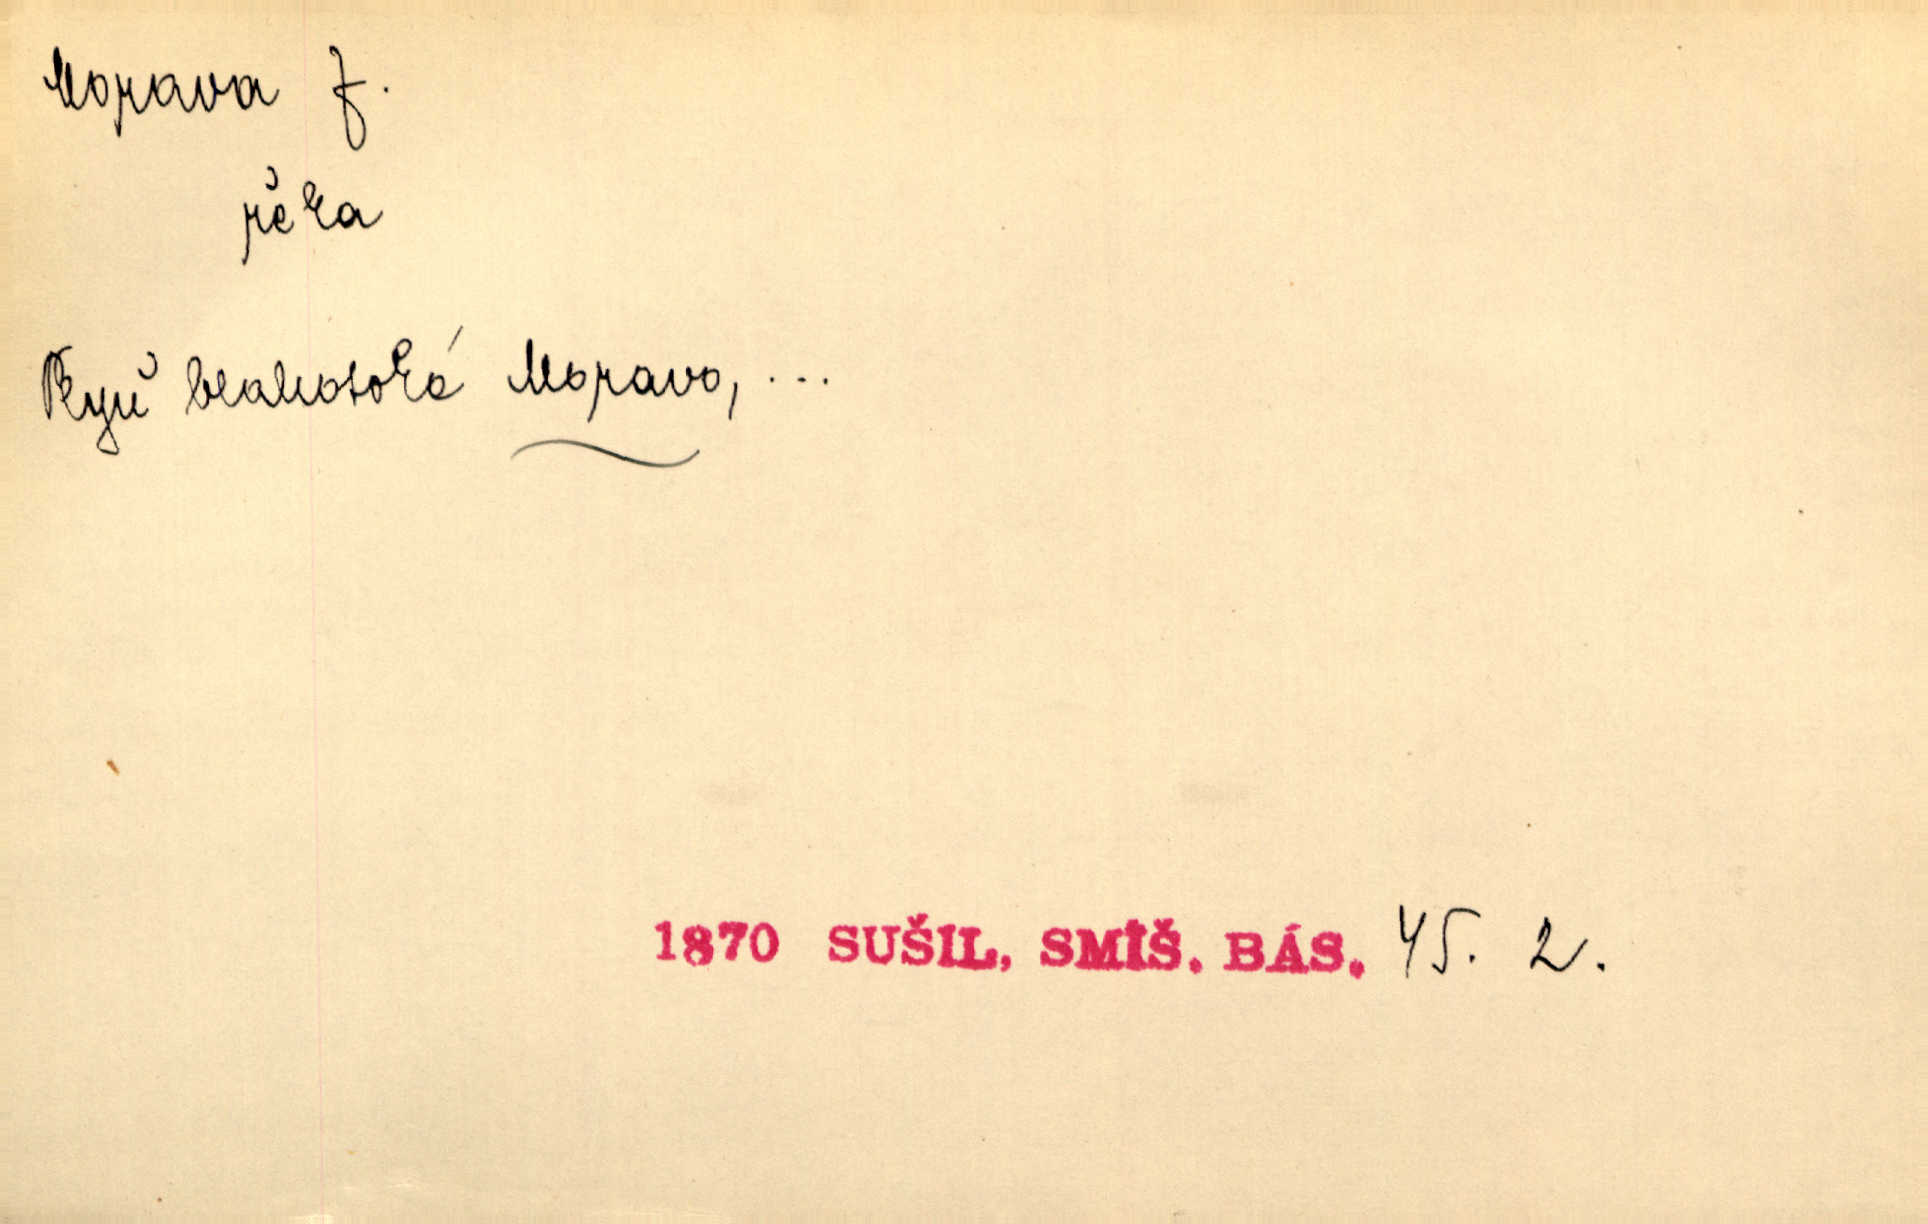 Morava f.
řěka
Plyň blahotoká Moravo, ...
1870 SUŠIL, SMÍŠ. BÁS. 45. 2.